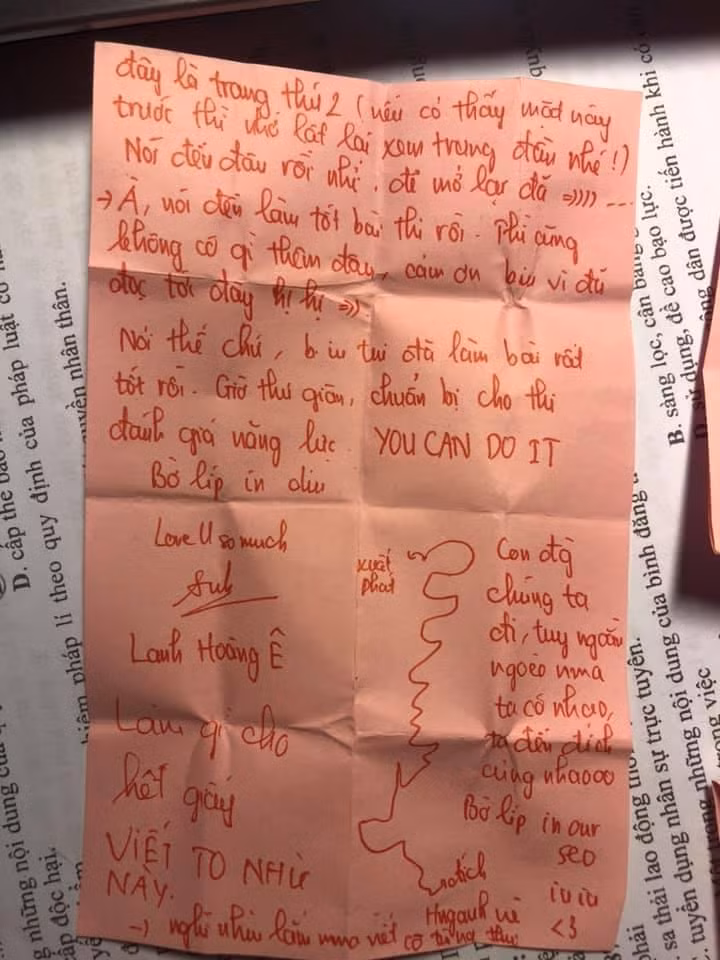 đây là trang thứ 2 (nếu có thấy mặt này
trước thì nhớ lật lại xem trang đầu nhé!)
Nói đến đâu rồi nhỉ, để mở lại đã =)))) ...
→ À, nói đến làm tốt bài thi rồi. Thì cũng
không có gì thêm đây, cảm ơn bìu vì đã
đọc tới đây hị hị =))
Nói thế chứ, bìu tui đã làm bài rất
tốt rồi. Giờ thư giãn, chuẩn bị cho thi
đánh giá năng lực. YOU CAN DO IT
Bờ líp in diu
Love U so much
Lanh Hoàng Ê
Làm gì cho
hết giấy
VIẾT TO NHƯ
NÀY.
→ nghĩ nhìu lắm mna viết có từng thui
xuất
phát
đích
Con đg
chúng ta
đi, tuy ngoằn
ngoèo nma
ta có nhao,
ta đến đích
cùng nhaooo
Bờ líp in our
seo
iu iu
<3
D. cấp thẻ bảo
quyền nhân thân.
pháp lí theo quy định của pháp luật có
D. cấp độc hại.
những nội dung của
B. sàng lọc, cân bằng
D. sử dụng, đề cao bạo lực.
dân được tiến hành khi có
sa thải lao động
tuyển dụng nhân sự trực tuyến.
những nội dung của bình đẳng
trong việc